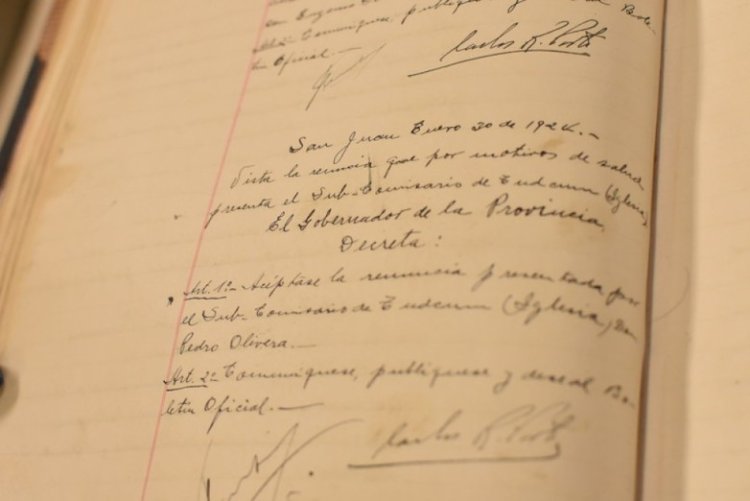 san Eugenio
Comuníquese, publíquese y
tín Oficial.—
Carlos R. Porto
San Juan Enero 30 de 1924.-
Vista la renuncia que por motivos de salud
presenta el Sub-Comisario de Tudcum (Iglesia,
El Gobernador de la Provincia,
Decreta:
Art. 1º- Acéptase la renuncia presentada por
el Sub-Comisario de Tudcum (Iglesia, Don
Pedro Olivera.—
Art. 2º- Comuníquese, publíquese y dese al Bo-
letin Oficial.—
Carlos R. Porto